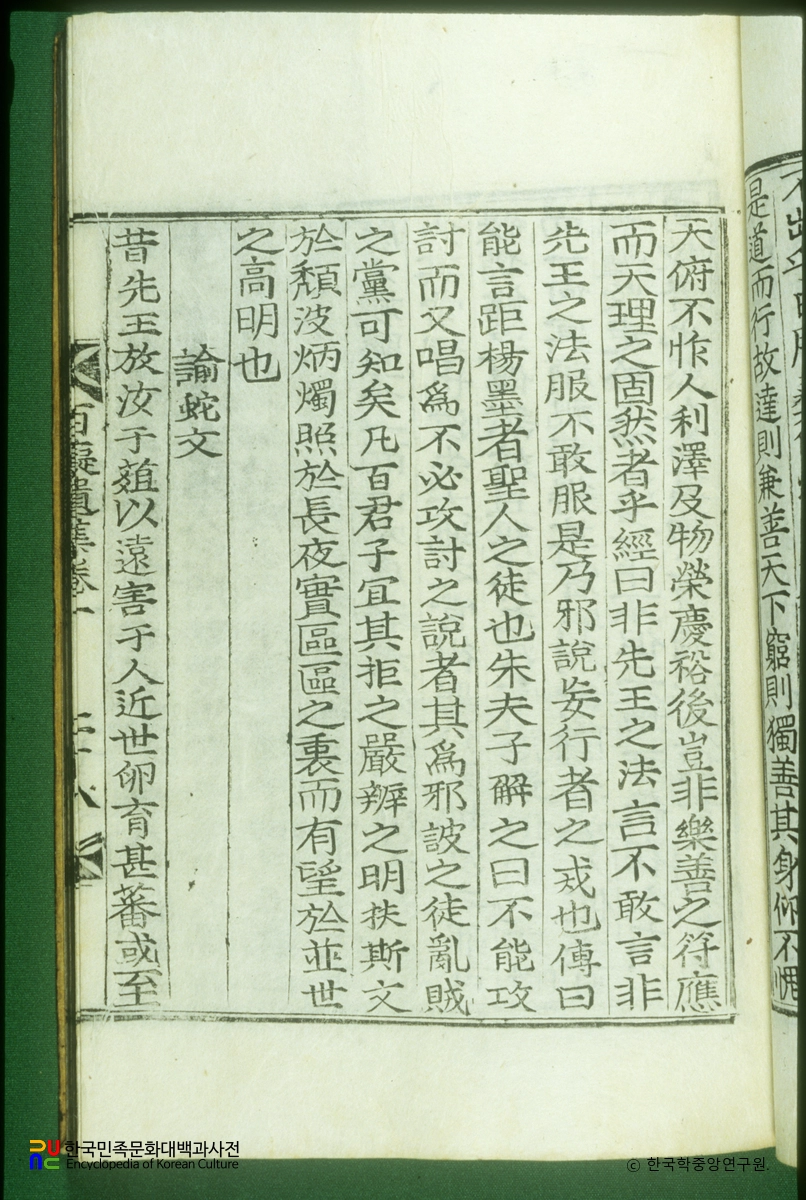 是道而行故達則兼善天下窮則獨善其身仰不愧
天俯不怍人利澤及物榮慶裕後豈非樂善之符應
而天理之固然者乎經曰非先王之法言不敢言非
先王之法服不敢服是乃邪說妄行者之戒也傳曰
能言距楊墨者聖人之徒也朱夫子解之曰不能攻
討而又唱爲不必攻討之說者其爲邪詖之徒亂賊
之黨可知矣凡百君子宜其拒之嚴辨之明扶斯文
於頹波炳燭照於長夜實區區之裏而有望於並世
之高明也
諭蛇文
昔先王放汝于菹以遠害于人近世卵育甚蕃或至
百癡遺集卷一
二十八
한국민족문화대백과사전
Encyclopedia of Korean Culture
ⓒ 한국학중앙연구원